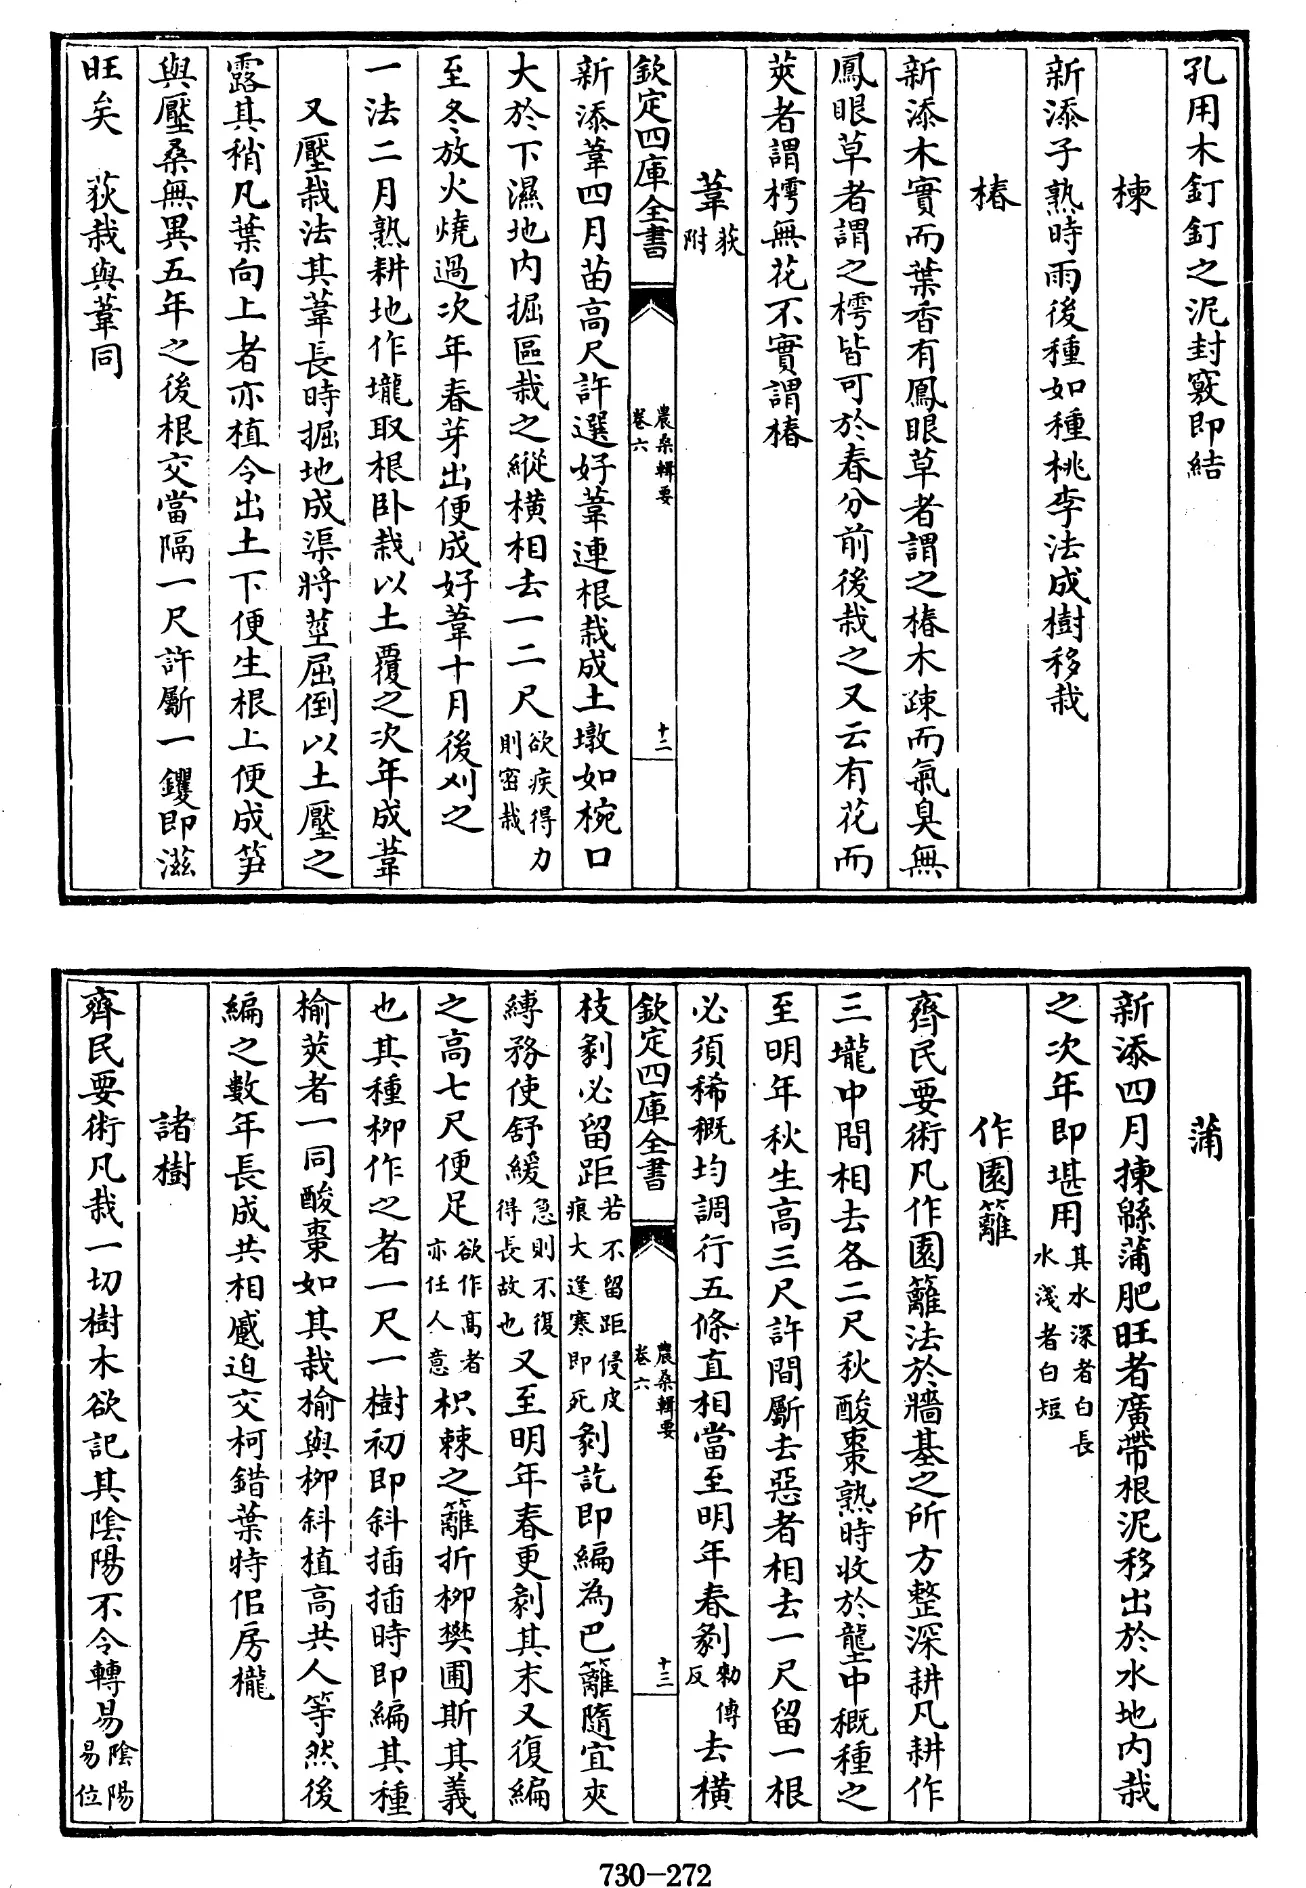 孔用木釘釘之泥封竅即結
楝
新添子熟時雨後種如種桃李法成樹移栽
椿
新添木實而葉香有鳳眼草者謂之椿木疎而氣臭無
鳳眼草者謂之樗皆可於春分前後栽之又云有花而
莢者謂樗無花不實謂椿
葦荻附
欽定四庫全書 農桑輯要 卷六 十二
新添葦四月苗高尺許選好葦連根栽成土墩如椀口
大於下濕地内掘區栽之縱橫相去一二尺欲疾得力則密栽
至冬放火燒過次年春芽出便成好葦十月後刈之
一法二月熟耕地作壠取根卧栽以土覆之次年成葦
又壓栽法其葦長時掘地成渠將莖屈倒以土壓之
露其稍凡葉向上者亦植令出土下便生根上便成笋
與壓桑無異五年之後根交當隔一尺許斸一钁即滋
旺矣 荻栽與葦同
蒲
新添四月揀緜蒲肥旺者廣帶根泥移出於水地内栽
之次年即堪用其水深者白長水淺者白短
作園籬
齊民要術凡作園籬法於牆基之所方整深耕凡耕作
三壠中間相去各二尺秋酸棗熟時收於壟中穊種之
至明年秋生高三尺許間斸去惡者相去一尺留一根
必須稀穊均調行五條直相當至明年春剶勑傳反去橫
欽定四庫全書 農桑輯要 卷六 十三
枝剶必留距若不留距侵皮痕大逢寒即死剶訖即編為巴籬隨宜夾
縛務使舒緩急則不復得長故也又至明年春更剶其末又復編
之高七尺便足欲作高者亦任人意枳棘之籬折柳樊圃斯其義
也其種柳作之者一尺一樹初即斜插插時即編其種
榆莢者一同酸棗如其栽榆與柳斜植高共人等然後
編之數年長成共相慼迫交柯錯葉特佀房櫳
諸樹
齊民要術凡栽一切樹木欲記其陰陽不令轉易陰陽易位
730-272